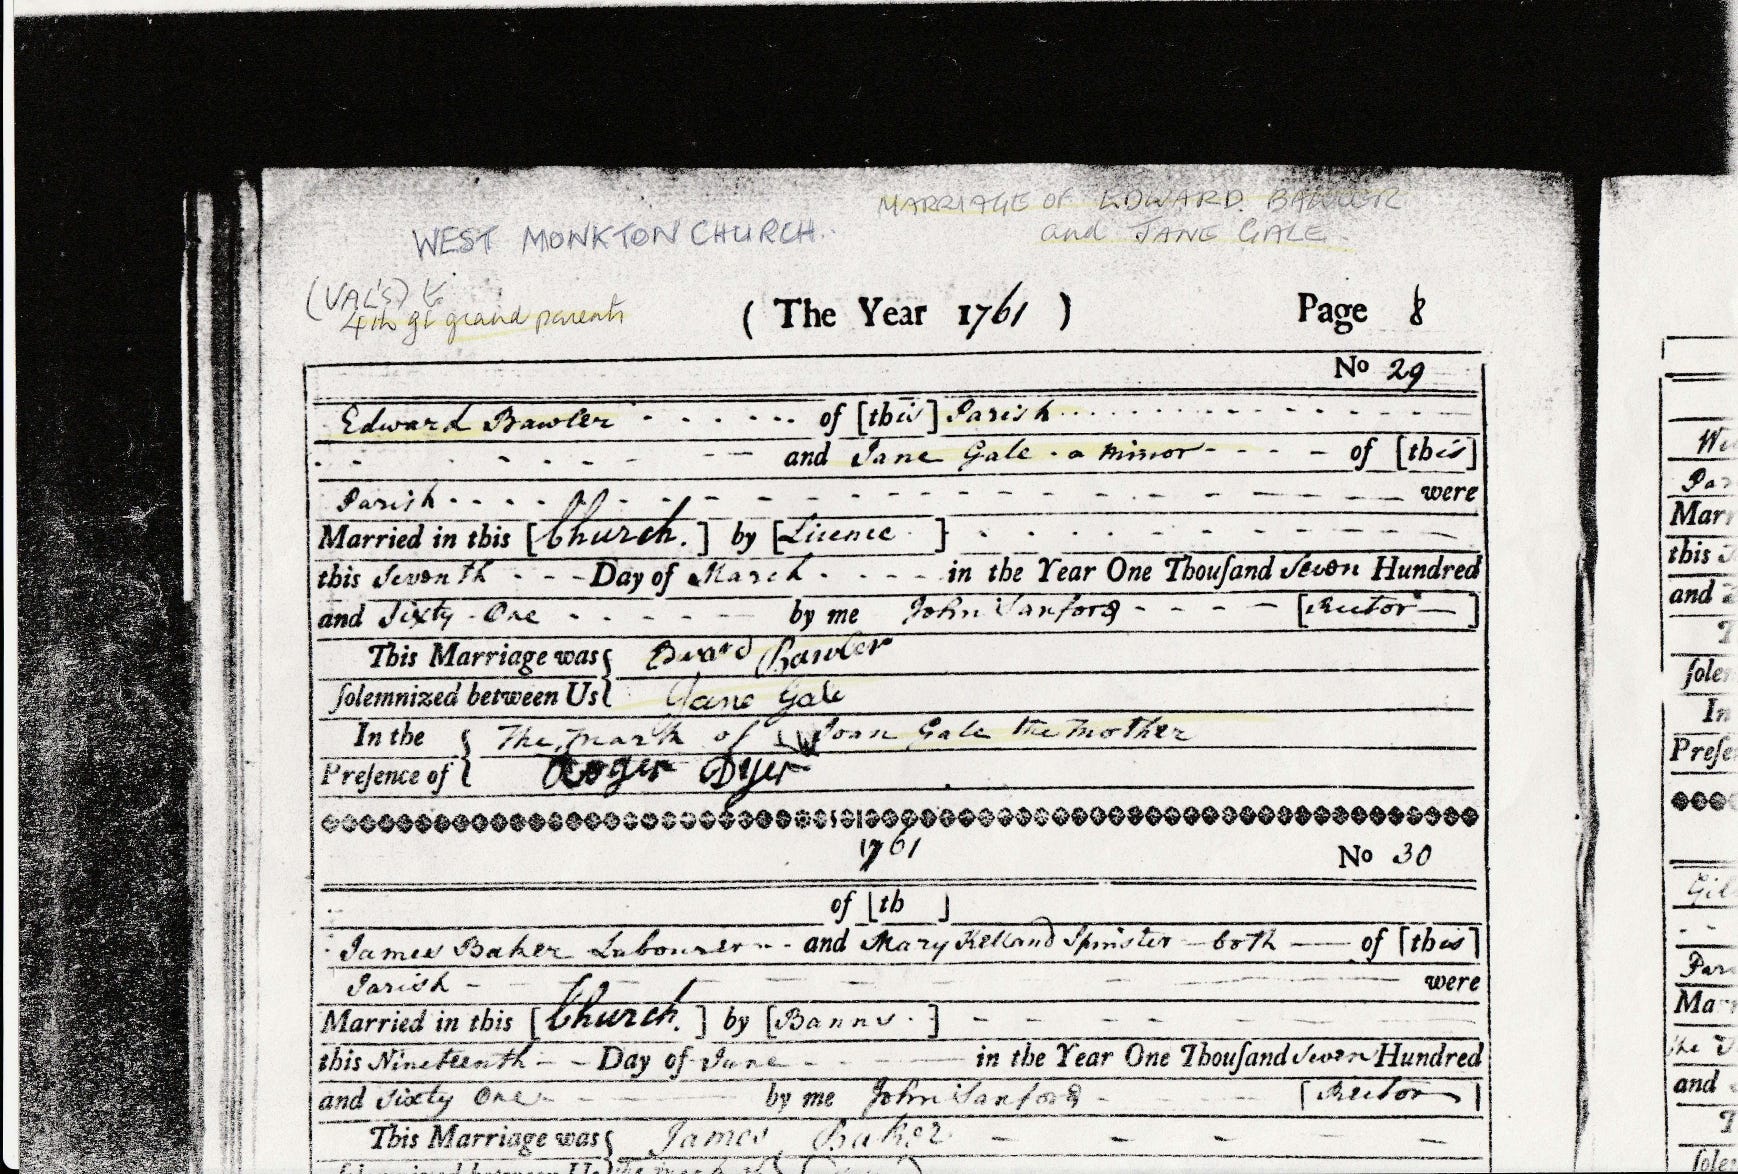 MARRIAGE OF EDWARD BAWLER
and JANE GALE.
WEST MONKTON CHURCH.
(VAL'S)
4th gt grand parents
( The Year 1761 ) Page 8
No 29
Edward Bawler of [this] Parish
and Jane Gale a minor of [this]
Parish were
Married in this [Church.] by [Licence]
this Seventh Day of March in the Year One Thouſand Seven Hundred
and Sixty One by me John Sanford [Rector]
This Marriage was { Edward Bawler
ſolemnized between Us { Jane Gale
In the { The mark of Joan Gale the mother
Preſence of { Roger Dyer
1761 No 30
of [th ]
James Baker Labourer and Mary Kelland Spinster both of [this]
Parish were
Married in this [Church.] by [Banns.]
this Nineteenth Day of June in the Year One Thouſand Seven Hundred
and Sixty One by me John Sanford [Rector]
This Marriage was { James Baker
ſolemnized between Us
Par
Marr
this
and
ſolem
In
Preſe
Gil
Par
Ma
and
ſole